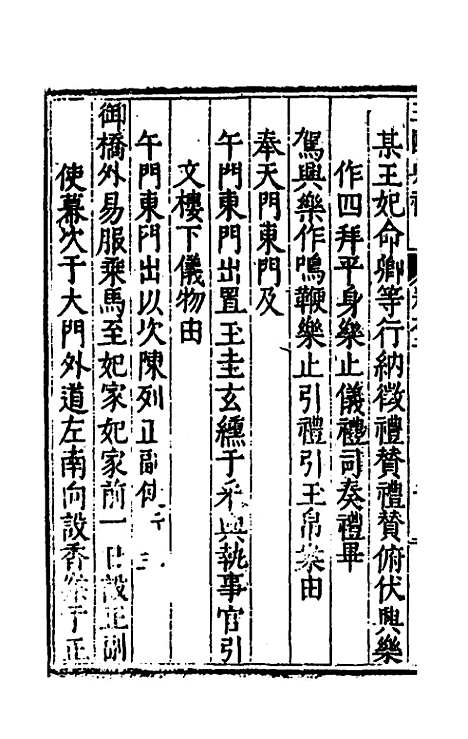 某王妃命卿等行納徵禮贊禮贊俯伏興樂
作四拜平身樂止儀禮司奏禮畢
駕興樂作鳴鞭樂止引禮引玉帛案由
奉天門東門及
午門東門出置玉圭玄纁于采輿執事官引
文樓下儀物由
午門東門出以次陳列正副使
御橋外易服乘馬至妃家妃家前一日設正副
使幕次于大門外道左南向設香案于正